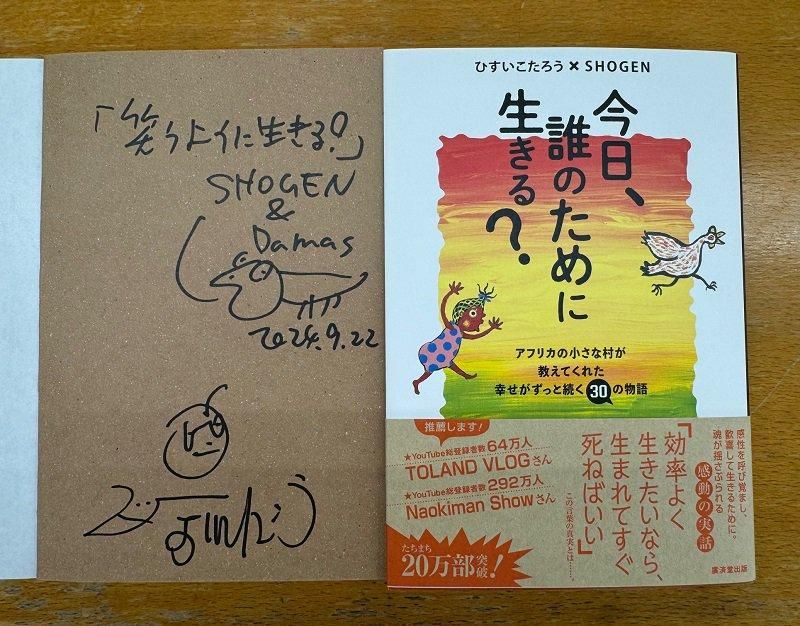 「笑うように生きる?」
SHOGEN
&
Damas
2024.9.22
ひすいこたろう×SHOGEN
今日、
誰のために
生きる?
アフリカの小さな村が
教えてくれた
幸せがずっと続く30の物語
推薦します!
★YouTube総登録者数64万人
TOLAND VLOGさん
★YouTube総登録者数292万人
Naokiman Showさん
たちまち
20万部突破!
感性を呼び覚まし、
歓喜して生きるために。
魂が揺さぶられる
感動の実話
「効率よく
生きたいなら、
生まれてすぐ
死ねばいい」
この言葉の真実とは……
廣済堂出版